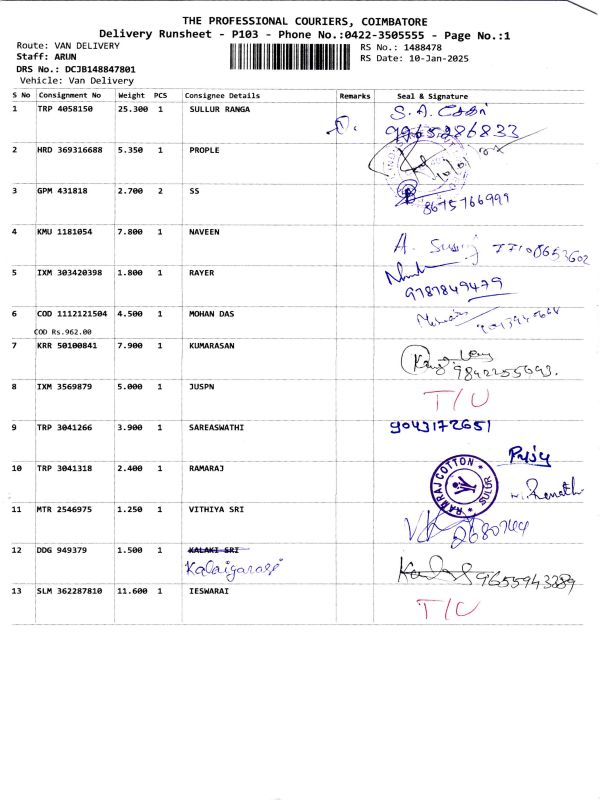 THE PROFESSIONAL COURIERS, COIMBATORE
Delivery Runsheet - P103 - Phone No.:0422-3505555 - Page No.:1
Route: VAN DELIVERY
RS No.: 1488478
Staff: ARUN
RS Date: 10-Jan-2025
DRS No.: DCJB148847801
Vehicle: Van Delivery
S No Consignment No Weight PCS Consignee Details Remarks Seal & Signature
1 TRP 4058150 25.300 1 SULLUR RANGA S. A. சேகர்
9965286833
2 HRD 369316688 5.350 1 PROPLE
3 GPM 431818 2.700 2 SS
8675766999
4 KMU 1181054 7.800 1 NAVEEN A.
5 IXM 303420398 1.800 1 RAYER
9787849479
6 COD 1112121504 4.500 1 MOHAN DAS
COD Rs.962.00
7 KRR 50100841 7.900 1 KUMARASAN
9842255693.
8 IXM 3569879 5.000 1 JUSPN T/U
9 TRP 3041266 3.900 1 SAREASWATHI 9043172651
10 TRP 3041318 2.400 1 RAMARAJ RAMRAJ COTTON SULUR
11 MTR 2546975 1.250 1 VITHIYA SRI
12 DDG 949379 1.500 1 KALAKI SRI
Kalaigarasi
9655943289
13 SLM 362287810 11.600 1 IESWARAI T/U